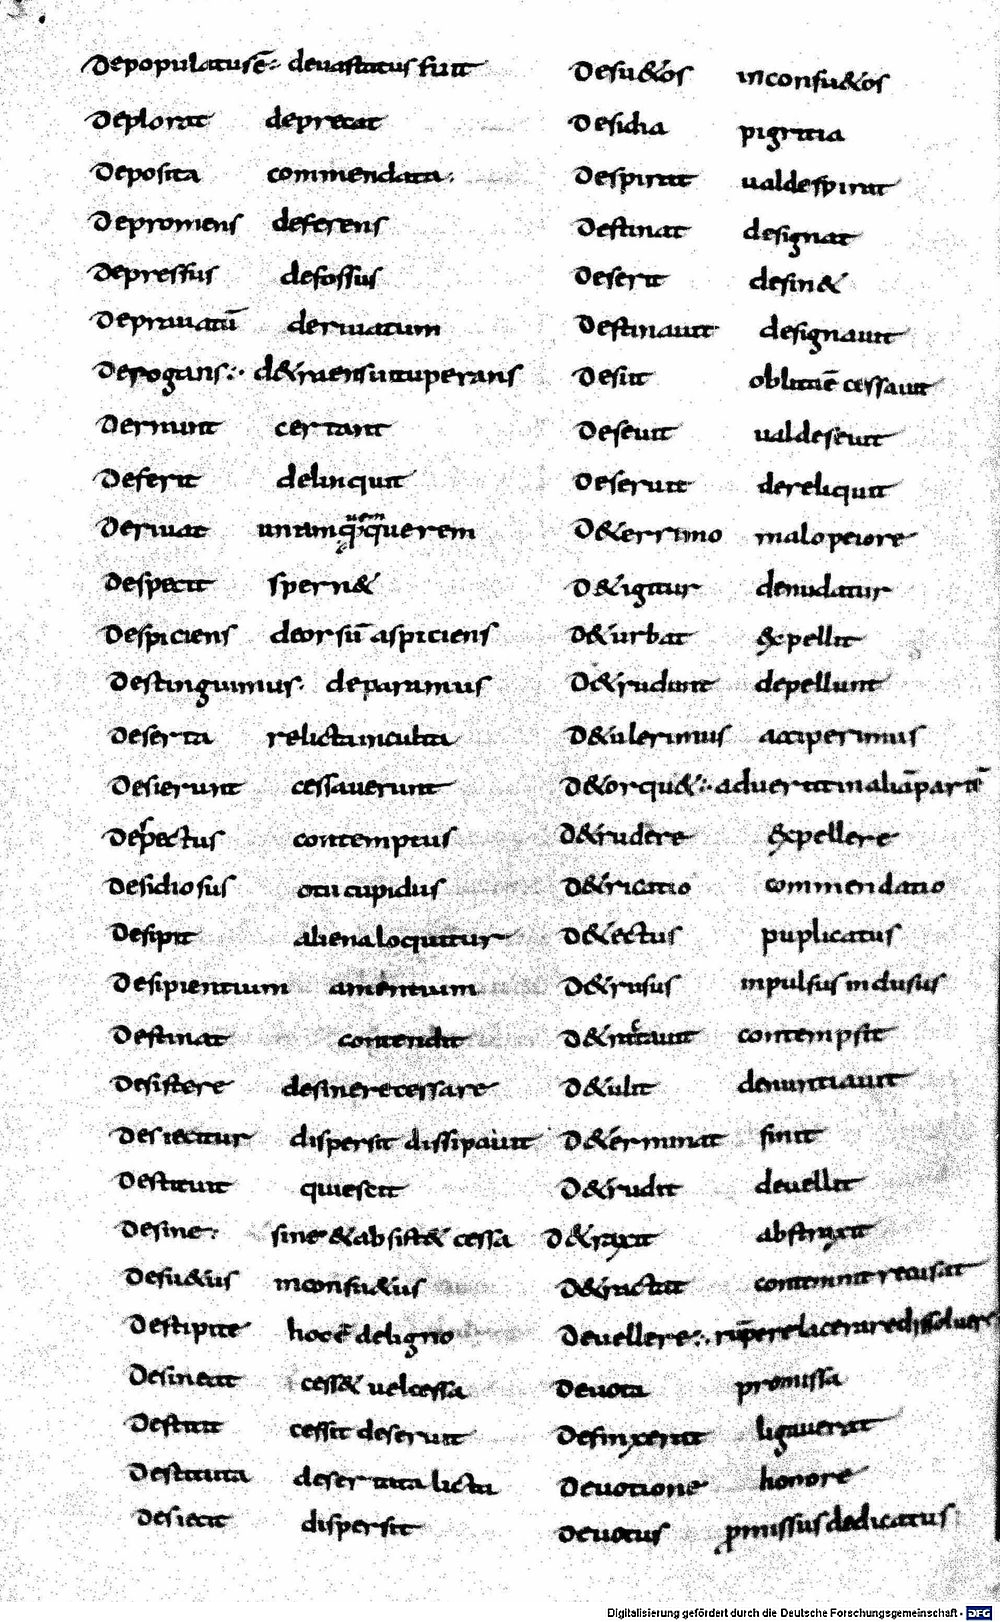 Depopulatusē· deuastatus fuit
Deplorat deprecat
Deposita commendata·
Depromens deferens
Depressus defossus
Deprauatū deriuatum
Derogans:· d&rahens uituperans
Dernunt certant
Deferit delinquit
Deriuat
Despecit spern&
Despiciens deorsū aspiciens
Destinguimus· deparamus
Deserta relicta inculta
Desierunt cessauerunt
Despectus contemptus
Desidiosus otii cupidus
Desipit aliena loquitur
Desipientium amentium
Destinat contendit
Desistere desinere cessare
Desiecitur dispersit dissipauit
Destituit quiescit
Desine: sine &absist& cessa
Desu&us inconsu&us
Destipite hocē deligno
Desineat cess& uelcessa
Destitit cessit deseruit
Destituta deserta
Desiecit dispersit
Desu&os inconsu&os
Desidia pigritia
Despirat ualdespirat
Destinat designat
Deserit desin&
Destinauit designauit
Desiit cessauit
Deseuit ualdeseuit
Deseruit dereliquit
D&errimo malo peiore
D&igitur denudatur
D&urbat expellit
D&rudunt depellunt
D&ulerimus acciperimus
D&orqu&:· aduertit inaliāpartē
D&rudere expellere
D&ricatio commendatio
D&ectus puplicatus
D&rusus inpulsus inclusus
contempsit
D&ulit denuntiauit
D&erminat finit
D&rudit deuellit
D&raxit abstraxit
D&ractat contemnit recusat
Deuellere:· rūpere lacerare dissoluere
Deuota promissa
Definxerat ligauerat
Deuotione honore
Deuotus ꝓmissus dedicatus
Digitalisierung gefördert durch die Deutsche Forschungsgemeinschaft - DFG